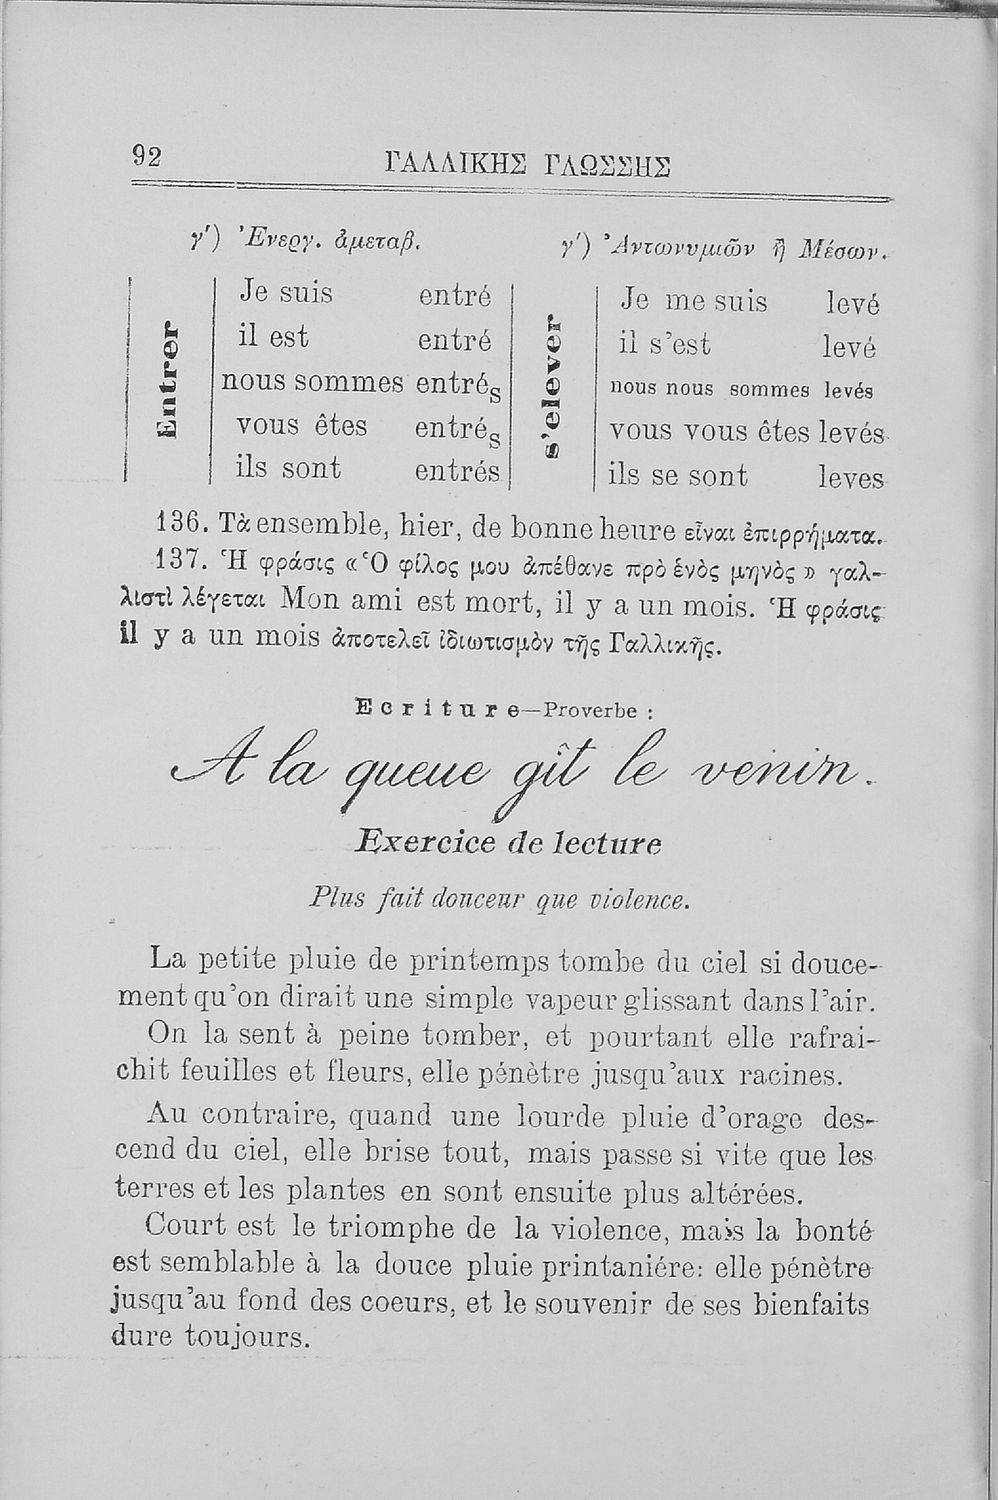 92
ΓΑΛΛΙΚΗΣ ΓΛΩΣΣΗΣ
γ') Ἐνεργ. ἀμεταβ.
Entrer
Je suis entré
il est entré
nous sommes entrés
vous êtes entrés
ils sont entrés
γ') Ἀντωνυμιῶν ἢ Μέσων.
s'elever
Je me suis levé
il s'est levé
nous nous sommes levés
vous vous êtes levés
ils se sont leves
136. Τὰ ensemble, hier, de bonne heure εἶναι ἐπιρρήματα.
137. Ἡ φράσις «Ὁ φίλος μου ἀπέθανε πρὸ ἑνὸς μηνὸς» γαλ-
λιστὶ λέγεται Mon ami est mort, il y a un mois. Ἡ φράσις
il y a un mois ἀποτελεῖ ἰδιωτισμὸν τῆς Γαλλικῆς.
Ecriture—Proverbe :
A la queue gît le venin.
Exercice de lecture
Plus fait douceur que violence.
La petite pluie de printemps tombe du ciel si douce-
ment qu'on dirait une simple vapeur glissant dans l'air.
On la sent à peine tomber, et pourtant elle rafrai-
chit feuilles et fleurs, elle pénètre jusqu'aux racines.
Au contraire, quand une lourde pluie d'orage des-
cend du ciel, elle brise tout, mais passe si vite que les
terres et les plantes en sont ensuite plus altérées.
Court est le triomphe de la violence, mais la bonté
est semblable à la douce pluie printaniére: elle pénètre
jusqu'au fond des coeurs, et le souvenir de ses bienfaits
dure toujours.